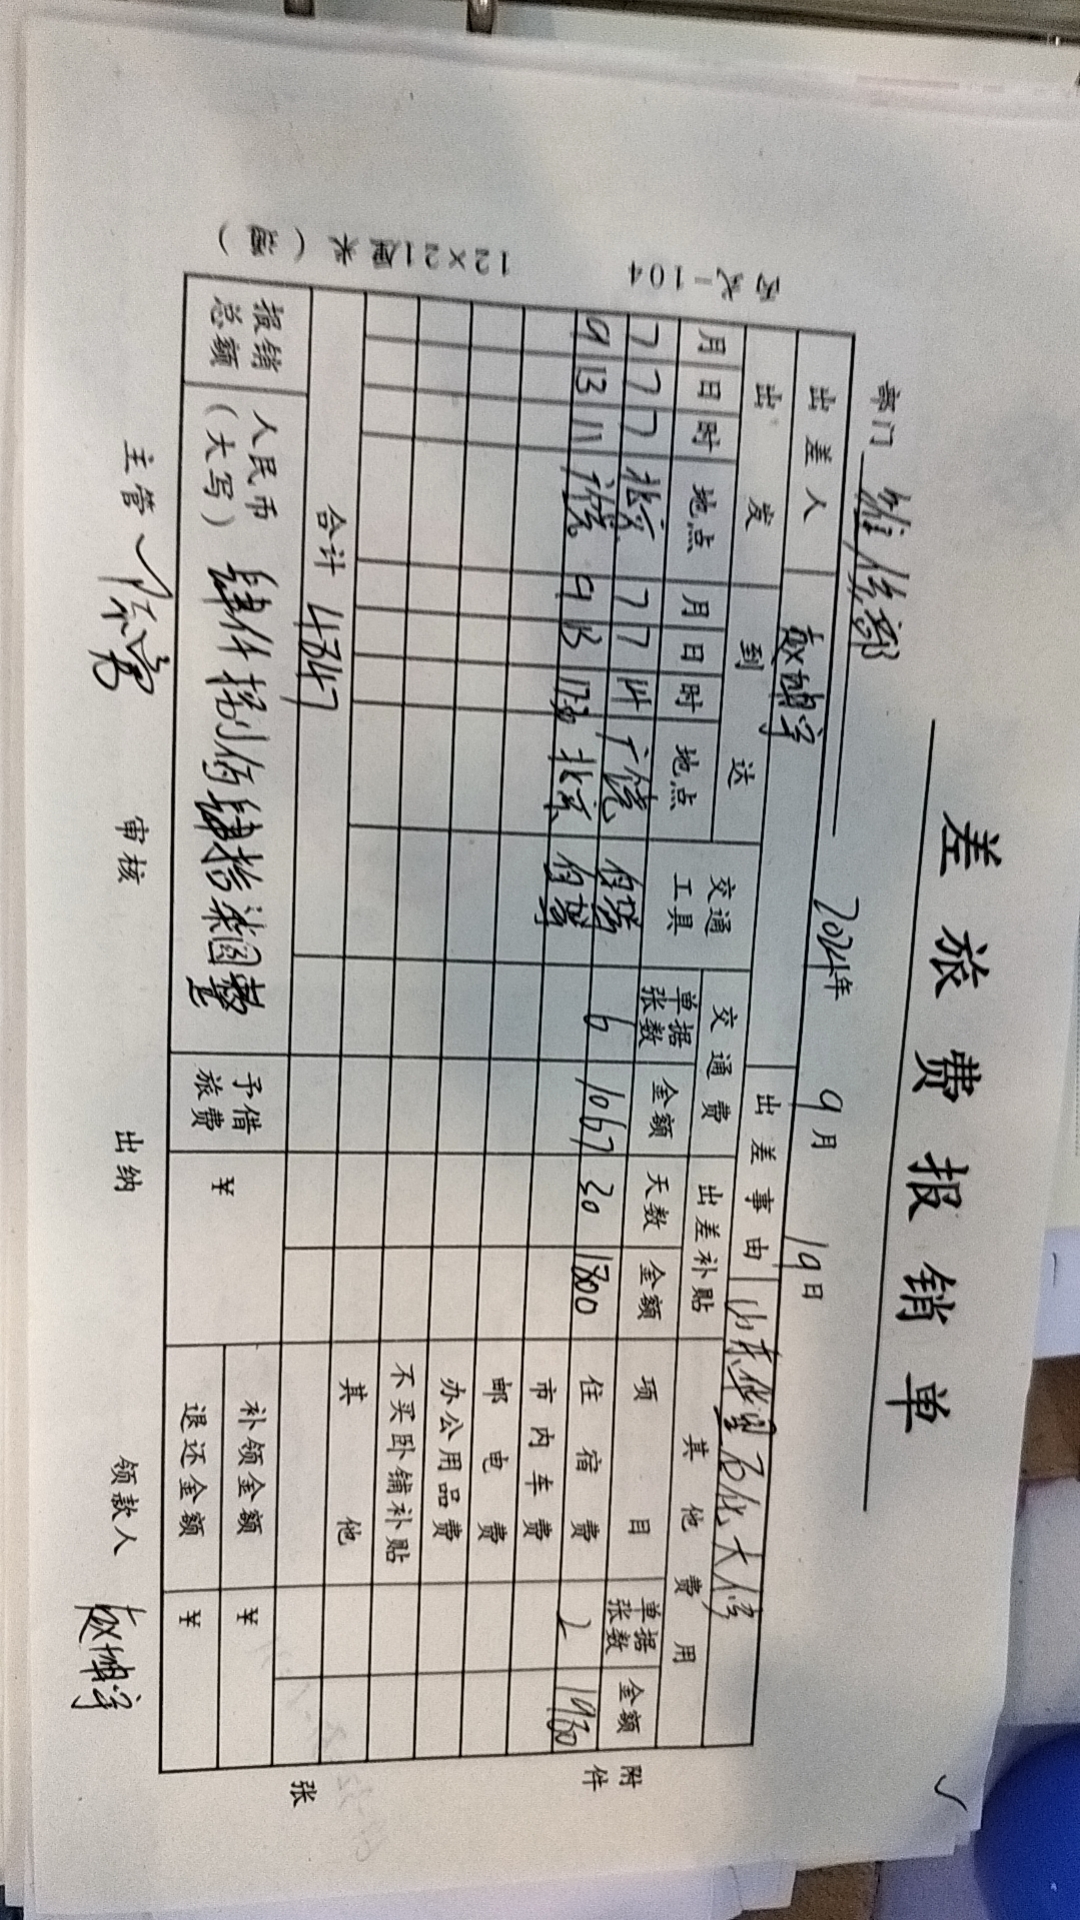 差旅费报销单
部门 维修部 2024年 9月 19日
出差人 赵坤宇 出差事由 山东华星石化大修
出发 到达 交通工具 交通费 出差补贴 其他费用
月 日 时 地点 月 日 时 地点 单据张数 金额 天数 金额 项目 单据张数 金额
7 7 7 北京 7 7 14 广饶 自驾 6 1067 30 1800 住宿费 2 1930
9 13 11 广饶 9 13 17:30 北京 自驾 市内车费
邮电费
办公用品费
不买卧铺补贴
其他
合计 4847
报销总额 人民币（大写） 肆仟捌佰肆拾柒圆整 予借旅费 ¥ 补领金额 ¥
退还金额 ¥
主管 审核 出纳 领款人 赵坤宇
附件 张
丙式-104 12×21厘米（通）